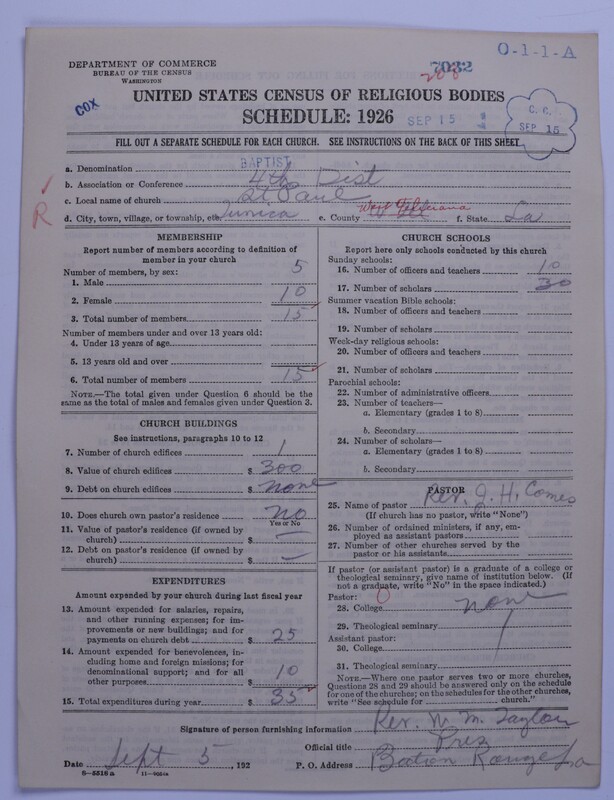 O-1-1-A
DEPARTMENT OF COMMERCE
BUREAU OF THE CENSUS
WASHINGTON
7032
208
COX
UNITED STATES CENSUS OF RELIGIOUS BODIES
SCHEDULE: 1926
SEP 15
C. R.
SEP 15
FILL OUT A SEPARATE SCHEDULE FOR EACH CHURCH. SEE INSTRUCTIONS ON THE BACK OF THIS SHEET
a. Denomination BAPTIST
b. Association or Conference 4th Dist
c. Local name of church St Paul
R
d. City, town, village, or township, etc. Tunica e. County West Feliciana f. State La
MEMBERSHIP
Report number of members according to definition of
member in your church
Number of members, by sex:
1. Male 5
2. Female 10
3. Total number of members 15
Number of members under and over 13 years old:
4. Under 13 years of age
5. 13 years old and over
6. Total number of members 15
NOTE.—The total given under Question 6 should be the
same as the total of males and females given under Question 3.
CHURCH BUILDINGS
See instructions, paragraphs 10 to 12
7. Number of church edifices 1
8. Value of church edifices $ 300
9. Debt on church edifices $ none
10. Does church own pastor's residence No
Yes or No
11. Value of pastor's residence (if owned by
church) $ —
12. Debt on pastor's residence (if owned by
church) $ —
EXPENDITURES
Amount expended by your church during last fiscal year
13. Amount expended for salaries, repairs,
and other running expenses; for im-
provements or new buildings; and for
payments on church debt $ 25
14. Amount expended for benevolences, in-
cluding home and foreign missions; for
denominational support; and for all
other purposes $ 10
15. Total expenditures during year $ 35
CHURCH SCHOOLS
Report here only schools conducted by this church
Sunday schools:
16. Number of officers and teachers 10
17. Number of scholars 30
Summer vacation Bible schools:
18. Number of officers and teachers
19. Number of scholars
Week-day religious schools:
20. Number of officers and teachers
21. Number of scholars
Parochial schools:
22. Number of administrative officers
23. Number of teachers—
a. Elementary (grades 1 to 8)
b. Secondary
24. Number of scholars—
a. Elementary (grades 1 to 8)
b. Secondary
PASTOR
25. Name of pastor Rev. J. H. Comes
(If church has no pastor, write "None")
26. Number of ordained ministers, if any, em-
ployed as assistant pastors
27. Number of other churches served by the
pastor or his assistants
If pastor (or assistant pastor) is a graduate of a college or
theological seminary, give name of institution below. (If
not a graduate, write "No" in the space indicated.)
Pastor: 0
28. College none
29. Theological seminary
Assistant pastor:
30. College
31. Theological seminary
NOTE.—Where one pastor serves two or more churches,
Questions 28 and 29 should be answered only on the schedule
for one of the churches; on the schedules for the other churches,
write "See schedule for church."
Signature of person furnishing information Rev. N. M. Taylor
Official title Prez
Date Sept 5, 192 P. O. Address Baton Rouge La
8—5518 a